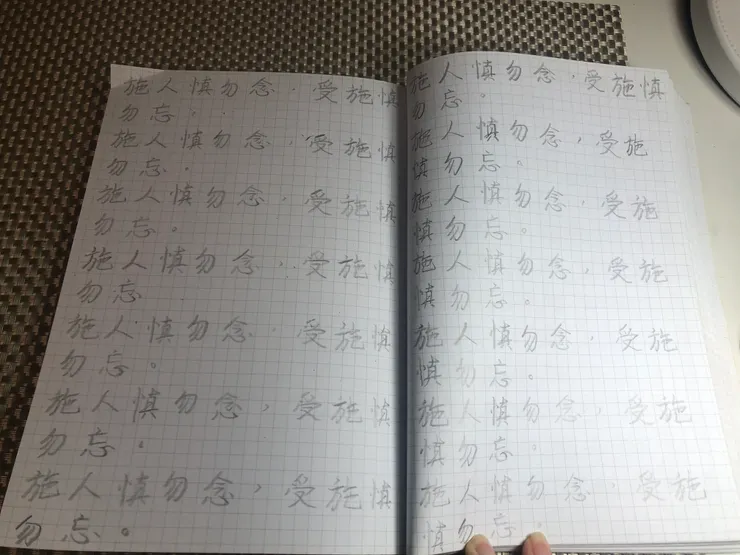 施人慎勿念，受施慎
勿忘。
施人慎勿念，受施慎
勿忘。
施人慎勿念，受施慎
勿忘。
施人慎勿念，受施慎
勿忘
施人慎勿念，受施慎
勿忘。
施人慎勿念，受施慎
勿忘。
施人慎勿念，受施慎
勿忘。
施人慎勿念，受施慎
勿忘。
施人慎勿念，受施
慎勿忘。
施人慎勿念，受施
慎勿忘。
施人慎勿念，受施
慎勿忘。
施人慎勿念，受施
慎勿忘。
施人慎勿念，受施
慎勿忘。
施人慎勿念，受施
慎勿忘。